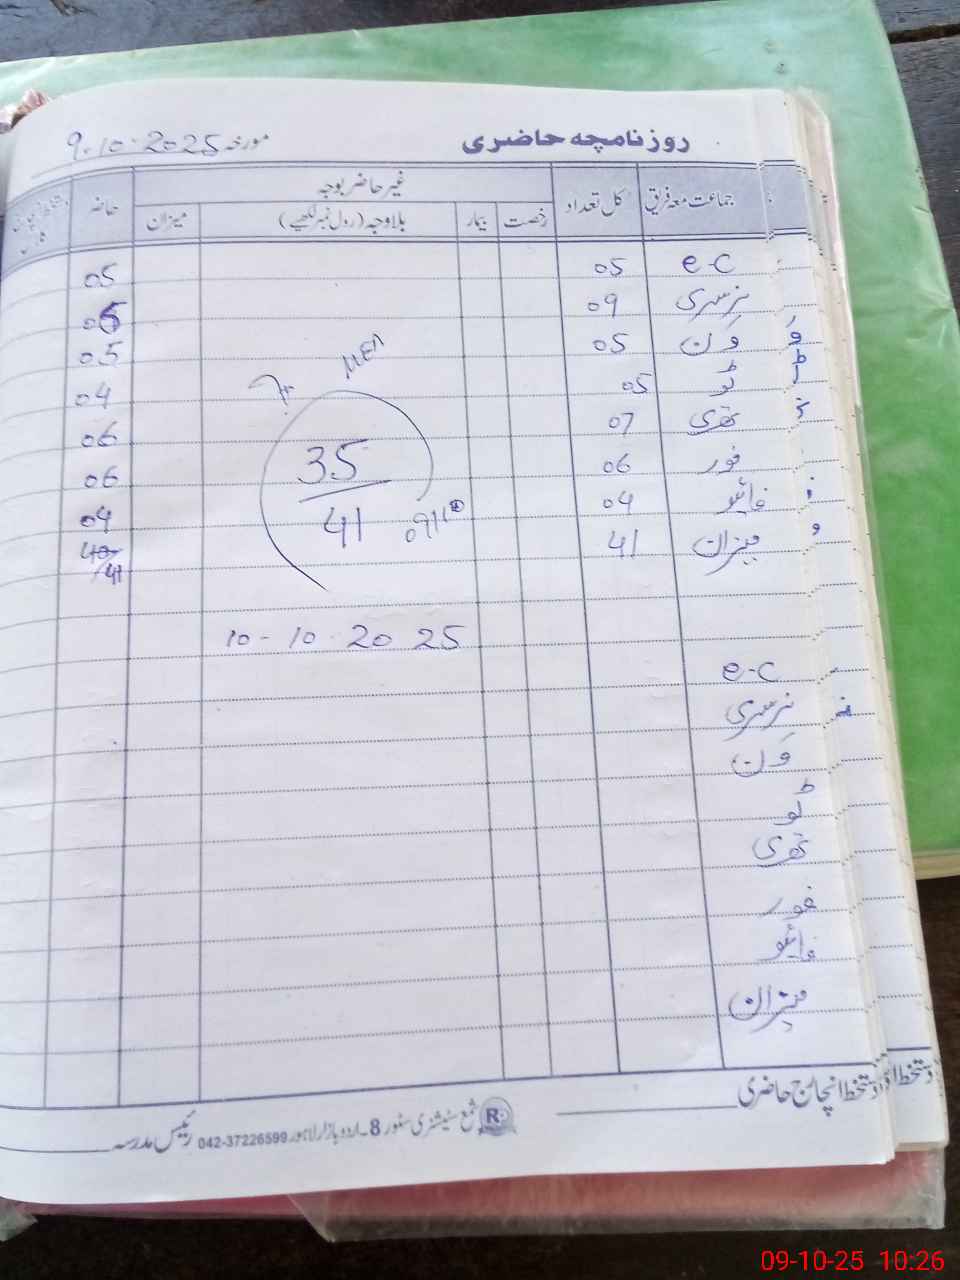 روزنامچہ حاضری مورخہ 9.10.2025
جماعت معہ فریق کل تعداد غیر حاضر بوجہ حاضر
رخصت بیمار بلاوجہ (رول نمبر لکھیے) میزان
e-c 05 05
نرسری 09
ون 05 05
ٹو 05 04
تھری 07 06
فور 06 06
فائیو 04 04
میزان 41 40 41
35
41
10-10.2025
e-c
نرسری
ون
ٹو
تھری
فور
فائیو
میزان
دستخط انچارج حاضری
شمع سٹیشنری سٹور 8۔اردو بازار لاہور 042-37226599 رئیس مدرسہ
09-10-25 10:26